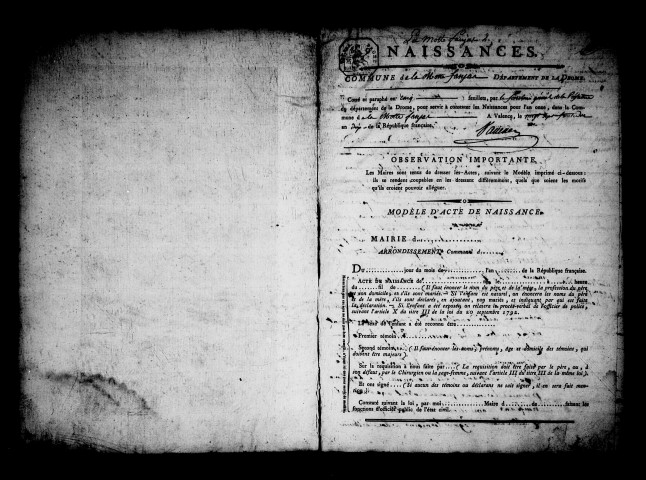 La Motte fanjas
NAISSANCES.
COMMUNE de la Motte fanjas DÉPARTEMENT DE LA DROME.
Coté et paraphé en cinq feuillets, par le
du département de la Drome, pour servir à constater les Naissances pour l'an onze, dans la Commune
d la Motte fanjas A Valence, le
an Dix de la République française.
OBSERVATION IMPORTANTE.
Les Maires sont tenus de dresser les Actes, suivant le Modèle imprimé ci-dessous:
ils se rendent coupables en les dressant différemment, quels que soient les motifs
qu'ils croient pouvoir alléguer.
MODÈLE D'ACTE DE NAISSANCE.
MAIRIE d
ARRONDISSEMENT Communal d
DU jour du mois de l'an de la République française.
ACTE DE NAISSANCE de né le heure
du fil de (Il faut énoncer le nom du père et de la mère, la profession du père
et son domicile, et s'ils sont mariés. — Si l'enfant est naturel, on énoncera les noms du père
et de la mère, s'ils sont déclarés, en ajoutant, non mariés, et indiquant par qui est faite
la déclaration. — Si l'enfant a été exposé, on relatera le procès-verbal de l'officier de police,
suivant l'article X du titre III de la loi du 20 septembre 1792.
Le sexe de l'enfant a été reconnu être
Premier témoin
Second témoin (Il faut énoncer les noms, prénoms, âge et domicile des témoins, qui
doivent être majeurs)
Sur la requisition à nous faite par (La requisition doit être faite par le père, ou, à
son défaut, par le Chirurgien ou la sage-femme, suivant l'article III du titre III de la même loi).
Et ont signé (Si aucun des témoins ou déclarans ne sait signer, il en sera fait mention).
Constaté suivant la loi, par moi Maire d faisant les
fonctions d'officier public de l'état civil.